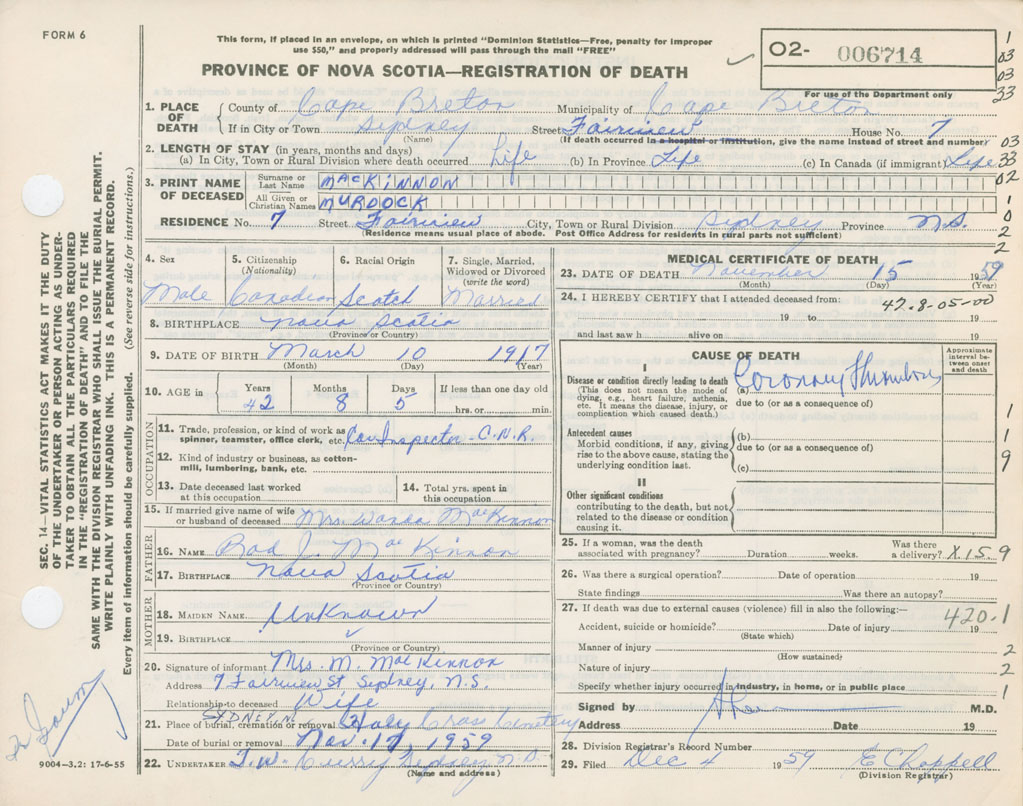 FORM 6
This form, if placed in an envelope, on which is printed "Dominion Statistics—Free, penalty for improper
use $50," and properly addressed will pass through the mail "FREE"
PROVINCE OF NOVA SCOTIA—REGISTRATION OF DEATH
O2- 006714
For use of the Department only
1
03
03
33
1. PLACE OF DEATH County of Cape Breton Municipality of Cape Breton
If in City or Town Sydney Street Fairview House No. 7
(Name) (If death occurred in a hospital or institution, give the name instead of street and number)
03
2. LENGTH OF STAY (in years, months and days)
(a) In City, Town or Rural Division where death occurred Life (b) In Province Life (c) In Canada (if immigrant) Life
33
02
3. PRINT NAME OF DECEASED Surname or Last Name MACKINNON
All Given or Christian Names MURDOCK
1
0
RESIDENCE No. 7 Street Fairview City, Town or Rural Division Sydney Province N.S.
2
(Residence means usual place of abode. Post Office Address for residents in rural parts not sufficient)
2
4. Sex Male
5. Citizenship (Nationality) Canadian
6. Racial Origin Scotch
7. Single, Married, Widowed or Divorced (write the word) Married
8. BIRTHPLACE Nova Scotia
(Province or Country)
9. DATE OF BIRTH March 10 1917
(Month) (Day) (Year)
10. AGE in Years 42 Months 8 Days 5 If less than one day old
hrs. or min.
OCCUPATION
11. Trade, profession, or kind of work as spinner, teamster, office clerk, etc. Car Inspector - C.N.R.
12. Kind of industry or business, as cotton-mill, lumbering, bank, etc.
13. Date deceased last worked at this occupation
14. Total yrs. spent in this occupation
15. If married give name of wife or husband of deceased Mrs. Wanda MacKinnon
FATHER
16. NAME Rod J. MacKinnon
17. BIRTHPLACE Nova Scotia
(Province or Country)
MOTHER
18. MAIDEN NAME Unknown
19. BIRTHPLACE
(Province or Country)
20. Signature of informant Mrs. M. MacKinnon
Address 7 Fairview St Sydney, N.S.
Relationship to deceased Wife
SYDNEY N
21. Place of burial, cremation or removal Holy Cross Cemetery
Date of burial or removal Nov. 17, 1959
22. UNDERTAKER T.W. Curry Sydney N.S.
(Name and address)
MEDICAL CERTIFICATE OF DEATH
23. DATE OF DEATH November 15 1959
(Month) (Day) (Year)
24. I HEREBY CERTIFY that I attended deceased from: 42.8-05-00
19 to 19
and last saw h alive on 19
CAUSE OF DEATH
Approximate interval between onset and death
I
Disease or condition directly leading to death
(This does not mean the mode of dying, e.g., heart failure, asthenia, etc. It means the disease, injury, or complication which caused death.)
(a) Coronary Thrombosis
due to (or as a consequence of)
1
Antecedent causes
Morbid conditions, if any, giving rise to the above cause, stating the underlying condition last.
(b)
due to (or as a consequence of)
(c)
1
9
II
Other significant conditions
contributing to the death, but not related to the disease or condition causing it.
25. If a woman, was the death associated with pregnancy? Duration weeks. Was there a delivery? X15.9
26. Was there a surgical operation? Date of operation 19
State findings Was there an autopsy?
27. If death was due to external causes (violence) fill in also the following:—
420.1
Accident, suicide or homicide? Date of injury 19
(State which)
Manner of injury
(How sustained)
2
Nature of injury
2
Specify whether injury occurred in industry, in home, or in public place
1
Signed by M.D.
Address Date 19
28. Division Registrar's Record Number
29. Filed Dec 4 1959 E Chappell
(Division Registrar)
SEC. 14—VITAL STATISTICS ACT MAKES IT THE DUTY
OF THE UNDERTAKER OR PERSON ACTING AS UNDER-
TAKER TO OBTAIN ALL THE PARTICULARS REQUIRED
IN THE "REGISTRATION OF DEATH" AND TO FILE THE
SAME WITH THE DIVISION REGISTRAR WHO SHALL ISSUE THE BURIAL PERMIT.
WRITE PLAINLY WITH UNFADING INK. THIS IS A PERMANENT RECORD.
Every item of information should be carefully supplied. (See reverse side for instructions.)
9004—3.2: 17-6-55